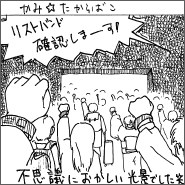 かみ☆たからばこ
リストバンド
確認しまーす!
不思議におかしい光景でした笑